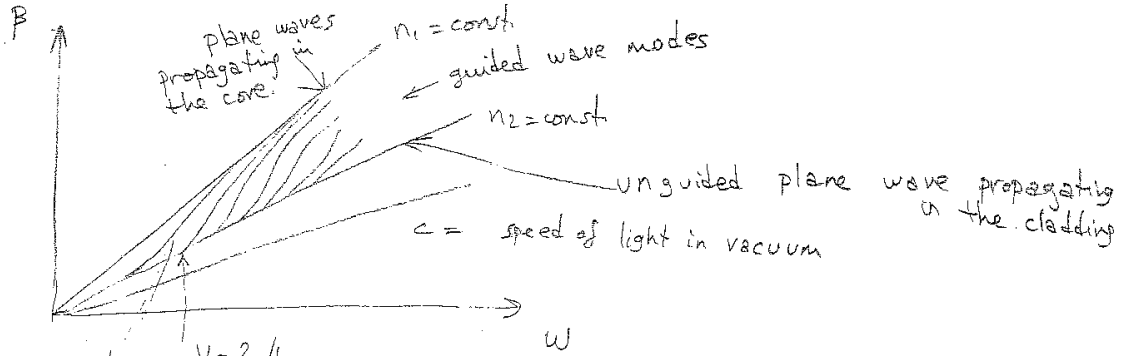 β
plane waves
propagating in
the core.
n₁ = const.
guided wave modes
n₂ = const.
unguided plane wave propagating
in the cladding
c = speed of light in vacuum
ω